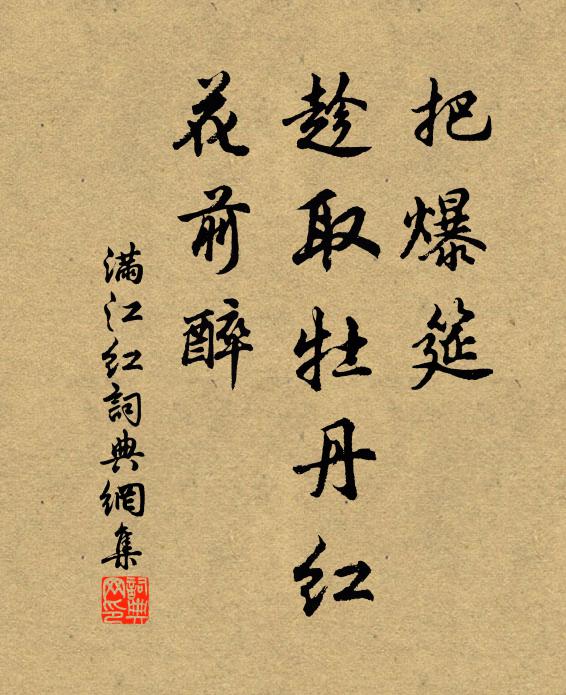 把爆筵
趁取牡丹红
花前醉
满江红詞典網集
詞典网印